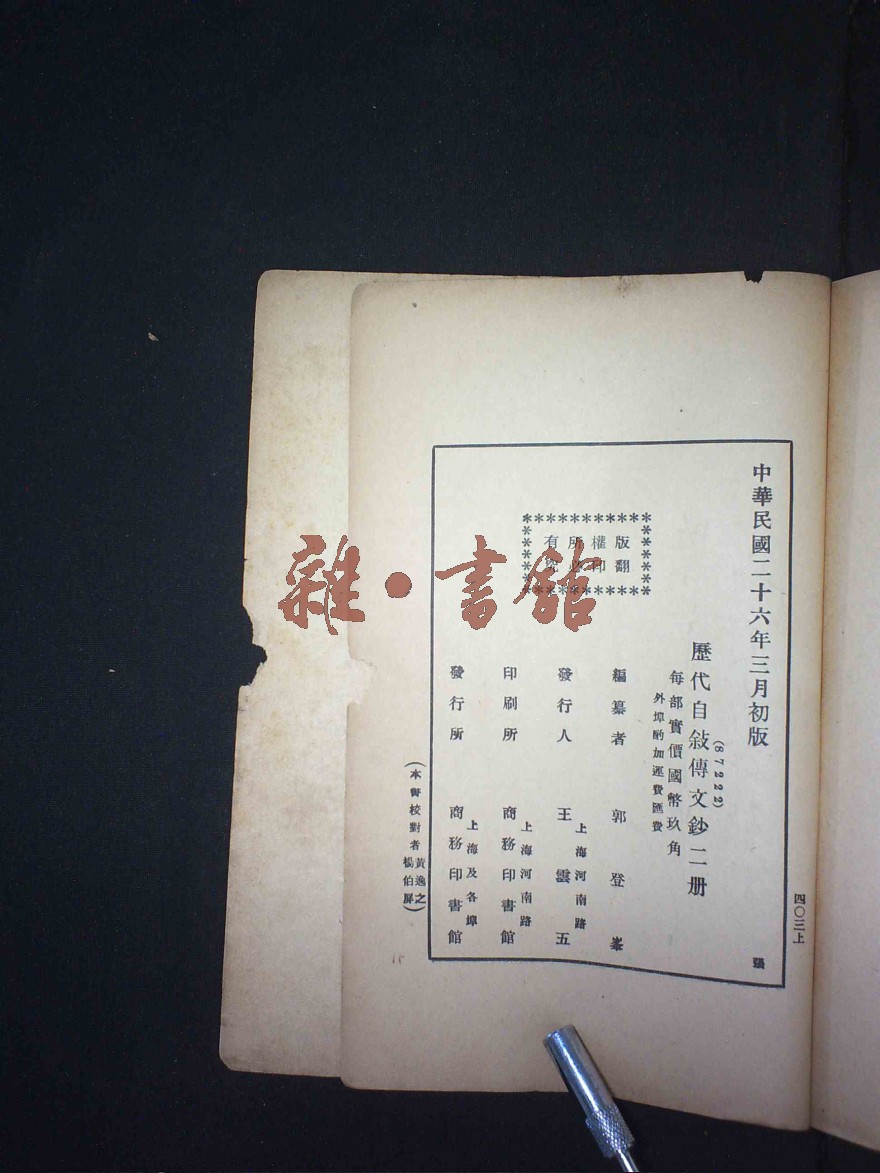 中華民國二十六年三月初版
四〇三上
歷代自敍傳文鈔二册
(87222)
每部實價國幣玖角
外埠酌加運費匯費
版權所有
翻印必究
編纂者 郭登峯
上海河南路
發行人 王雲五
上海河南路
印刷所 商務印書館
上海及各埠
發行所 商務印書館
(本書校對者黃逸之
楊伯屏)
雜·書館